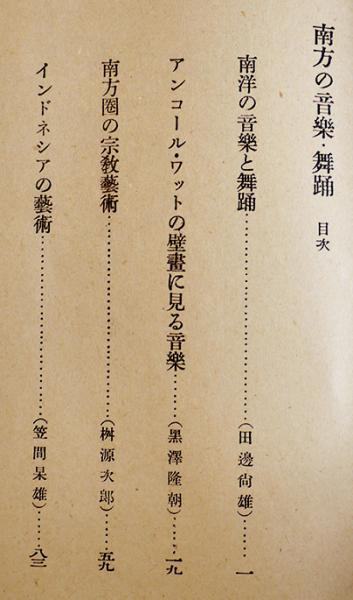 南方の音樂・舞踊 目次
南洋の音樂と舞踊……………………(田邊尙雄)……一
アンコール・ワットの壁畫に見る音樂……(黑澤隆朝)……一九
南方圏の宗敎藝術……………………(桝源次郎)……五九
インドネシアの藝術……………………(笠間杲雄)……八三